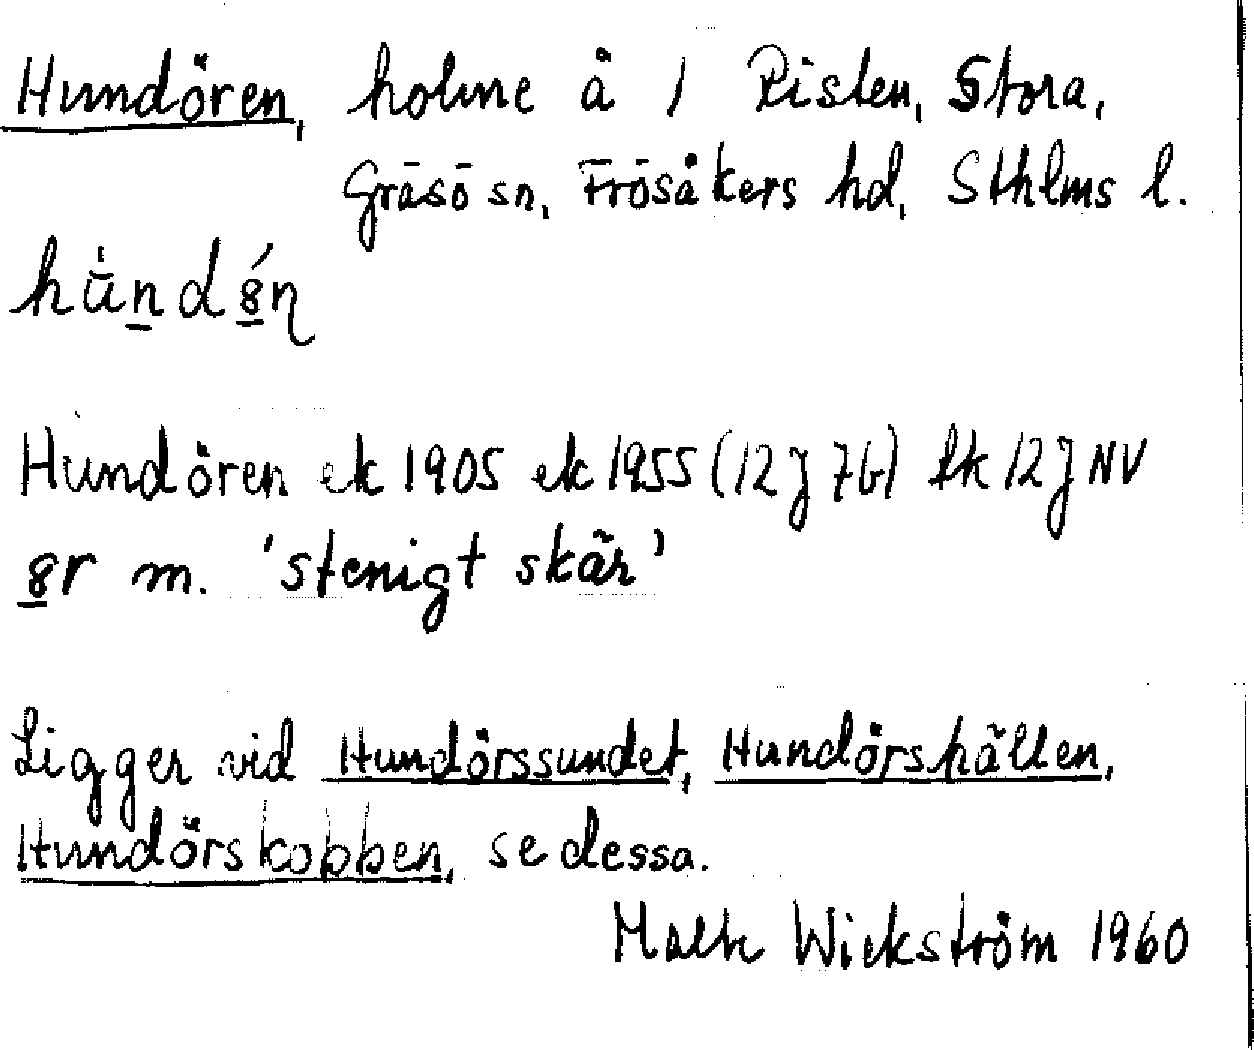 Hundören, holme å 1 Risten, Stora,
Gräsö sn, Frösåkers hd, Sthlms l.
Hundören ek 1905 ek 1955 (12 J 7b) tk 12 J NV
m. 'stenigt skär'
Ligger vid Hundörssundet, Hundörshällen,
Hundörskobben, se dessa.
Wickström 1960